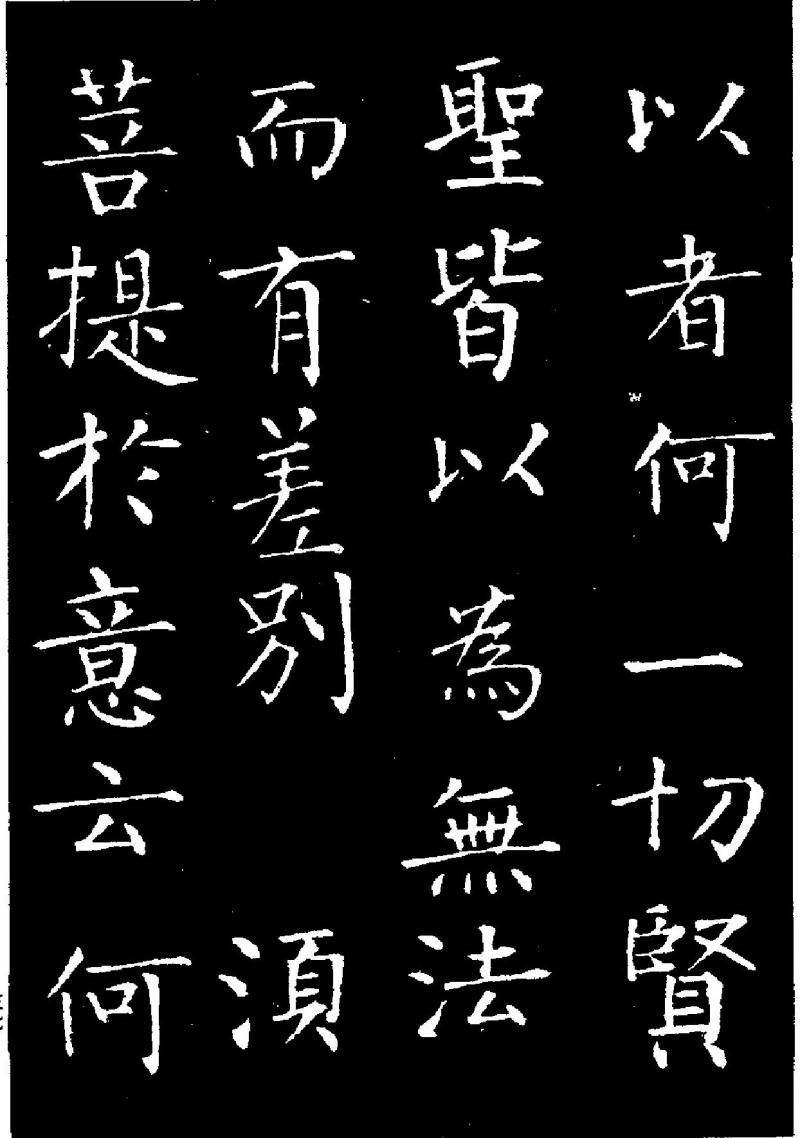 以者何一切賢
聖皆以為無法
而有差別 須
菩提於意云何